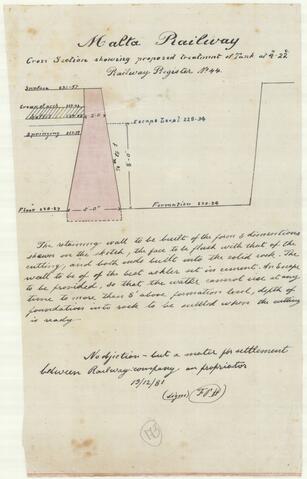 Malta Railway
Cross Section showing proposed treatment of Tank at
Railway Register No. 44.
Surface 231·57
2·0"
Escape Level 228·34
Springing
8'·0"
Floor
6'·0"
Formation 220·34
The retaining wall to be built of the form & dimensions
shown on the sketch, the face to be flush with that of the
cutting, and both ends built into the solid rock. The
wall to be of of the best ashlar set in cement. An Escape
to be provided, so that the water cannot rise at any
time to more than 8' above formation level, depth of
foundation into rock to be settled when the cutting
is ready.
No objection – but a matter for settlement
between Railway company an proprietor
13/12/81
(signd)